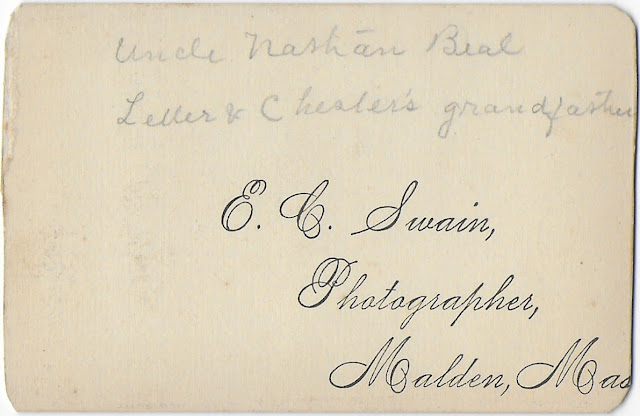 Uncle Nathan Beal
Lester & Chester's grandfather
E. C. Swain,
Photographer,
Malden, Mas